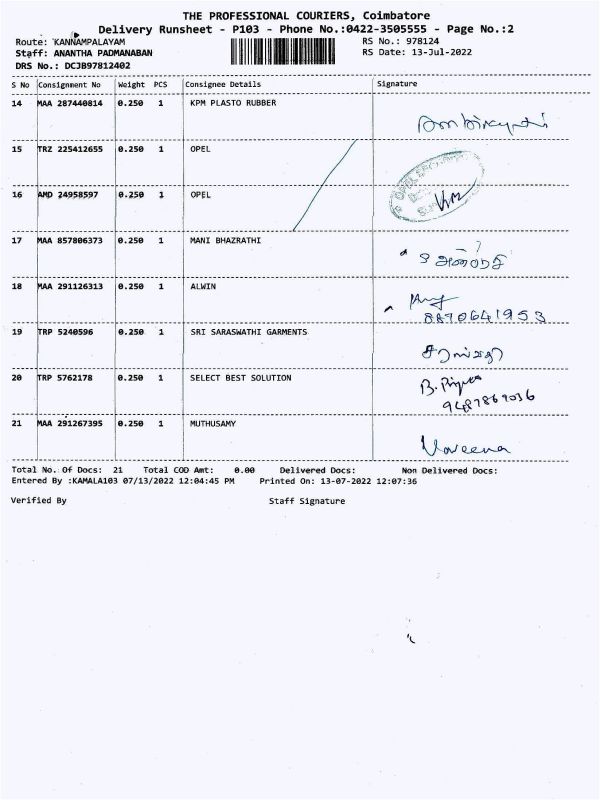 THE PROFESSIONAL COURIERS, Coimbatore
Delivery Runsheet - P103 - Phone No.:0422-3505555 - Page No.:2
Route: KANNAMPALAYAM RS No.: 978124
Staff: ANANTHA PADMANABAN RS Date: 13-Jul-2022
DRS No.: DCJB97812402
S No Consignment No Weight PCS Consignee Details Signature
14 MAA 287440814 0.250 1 KPM PLASTO RUBBER
15 TRZ 225412655 0.250 1 OPEL
16 AMD 24958597 0.250 1 OPEL
17 MAA 857806373 0.250 1 MANI BHAZRATHI
18 MAA 291126313 0.250 1 ALWIN
8870641953
19 TRP 5240596 0.250 1 SRI SARASWATHI GARMENTS
20 TRP 5762178 0.250 1 SELECT BEST SOLUTION
21 MAA 291267395 0.250 1 MUTHUSAMY
Total No. Of Docs: 21 Total COD Amt: 0.00 Delivered Docs: Non Delivered Docs:
Entered By :KAMALA103 07/13/2022 12:04:45 PM Printed On: 13-07-2022 12:07:36
Verified By Staff Signature